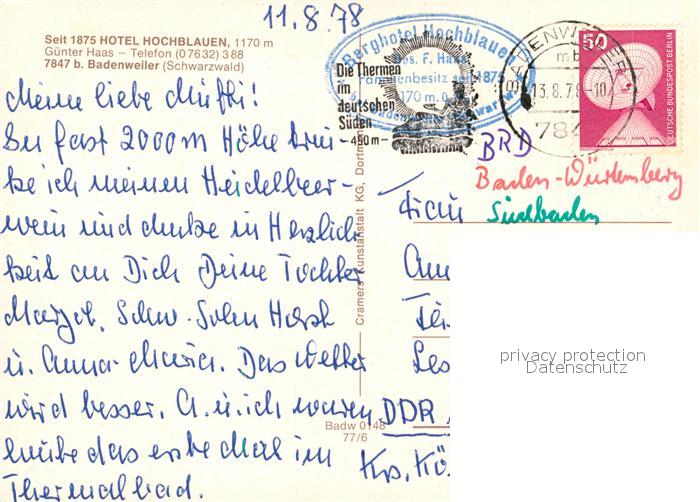 11.8.78
Seit 1875 HOTEL HOCHBLAUEN, 1170 m
Günter Haas – Telefon (07632) 388
7847 b. Badenweiler (Schwarzwald)
Berghotel Hochblauen
Bes. F. Haas
Familienbesitz seit 1875
1170 m. ü.
Badenweiler Schwarzwald
Die Thermen
im
deutschen
Süden
- 450 m -
BADENWEILER
mb
13.8.78.-10
784
50
DEUTSCHE BUNDESPOST BERLIN
Meine liebe Mutti!
In fast 2000 m Höhe trin-
ke ich meinen Heidelbeer-
wein und denke in Herzlich-
keit an Dich Deine Tochter
Margot, Schw. Sohn Horst
u. Anna-Maria. Das Wetter
wird besser. A. u. ich waren
heute das erste Mal im
Thermalbad.
Cramers Kunstanstalt KG, Dortm
Badw 0148
77/6
BRD
Baden-Württemberg
Südbaden
Frau
Ann
DDR
Krs. Kö
privacy protection
Datenschutz